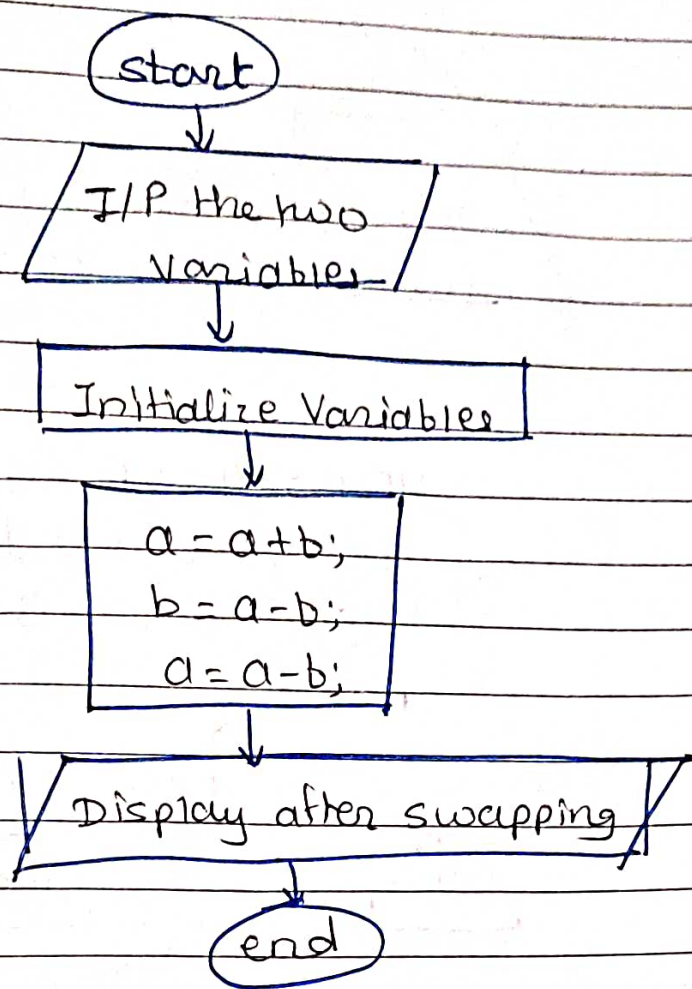 start
I/P the two
Variables
Initialize Variables
a = a+b;
b = a-b;
a = a-b;
Display after swapping
end